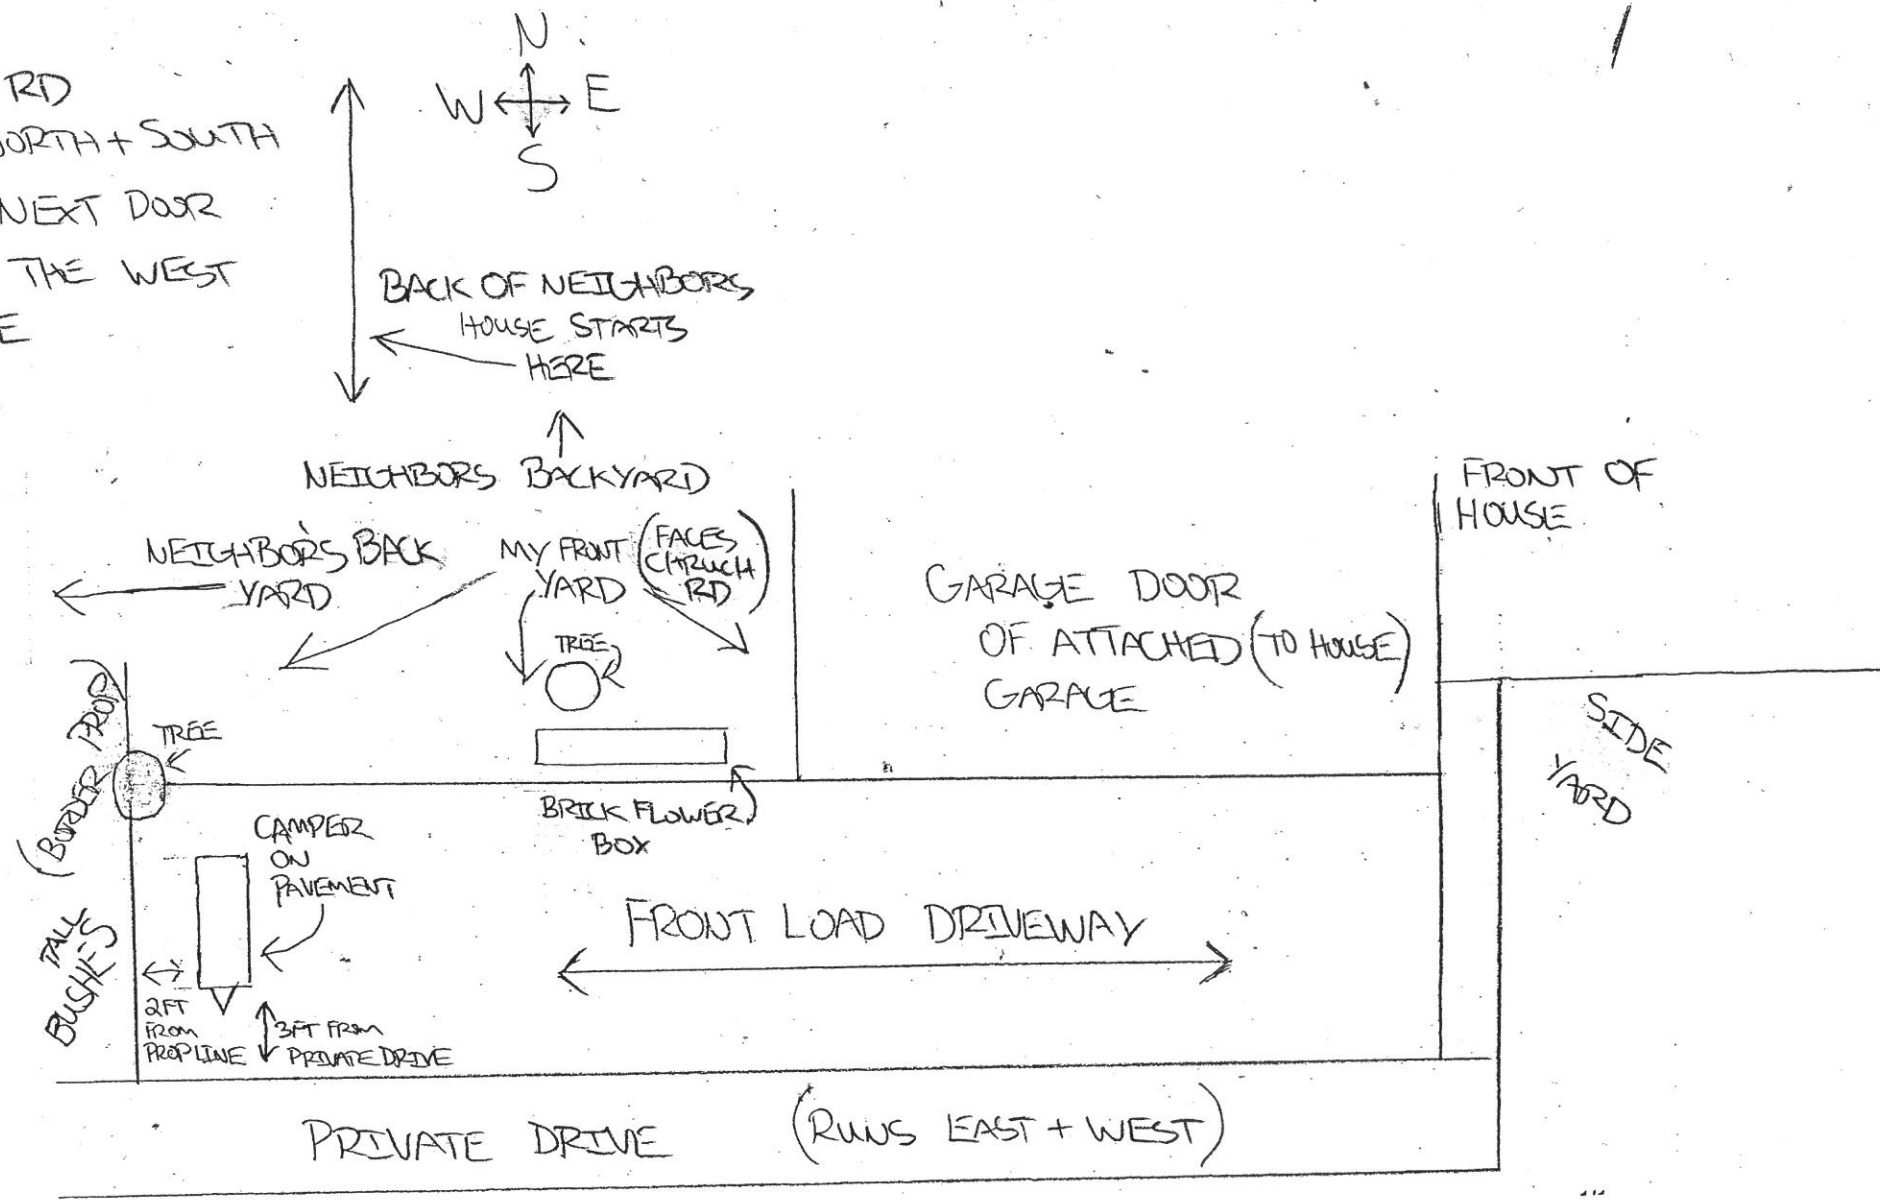 N
W E
S
RD
NORTH + SOUTH
NEXT DOOR
THE WEST
E
BACK OF NEIGHBORS
HOUSE STARTS
HERE
NEIGHBORS BACKYARD
NEIGHBORS BACK
YARD
MY FRONT
YARD
(FACES
CHRUCH
RD)
TREE
GARAGE DOOR
OF ATTACHED (TO HOUSE)
GARAGE
FRONT OF
HOUSE
SIDE
YARD
(BORDER PROP)
TREE
BRICK FLOWER
BOX
CAMPER
ON
PAVEMENT
TALL
BUSHES
FRONT LOAD DRIVEWAY
2FT
FROM
PROP LINE
3FT FROM
PRIVATE DRIVE
PRIVATE DRIVE (RUNS EAST + WEST)